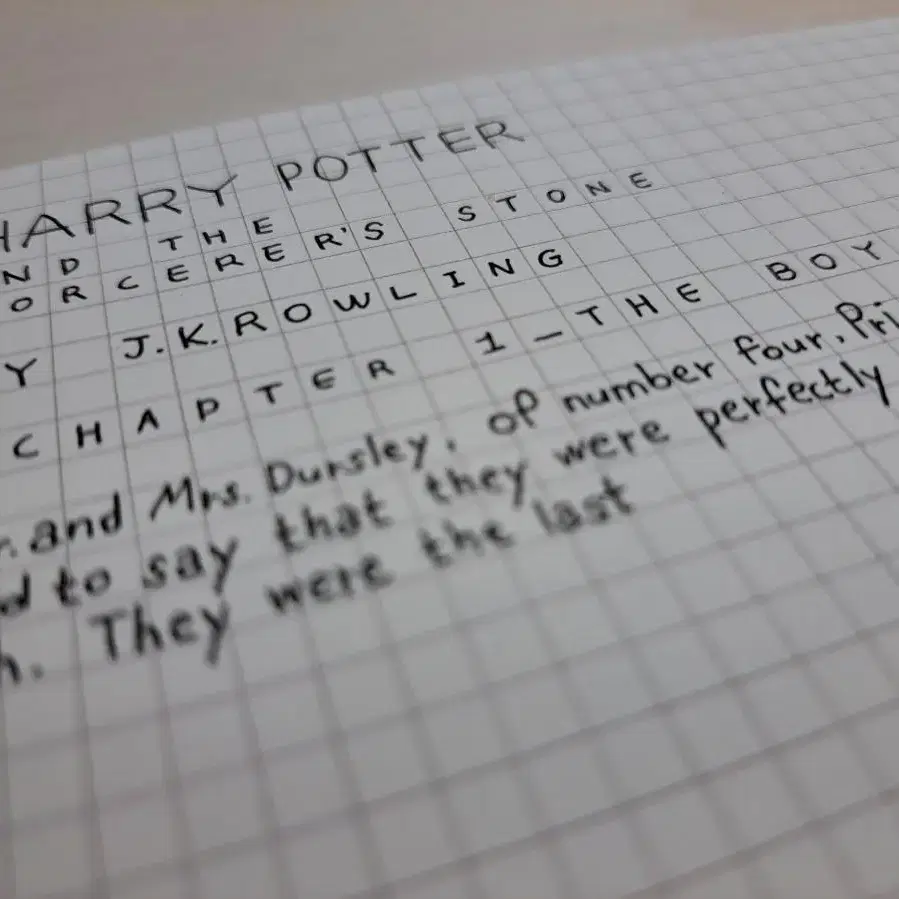 HARRY POTTER
ND THE
ORCERER'S STONE
Y J.K. ROWLING
CHAPTER 1 - THE BOY
r. and Mrs. Dursley, of number four, Pri
d to say that they were perfectly
h. They were the last